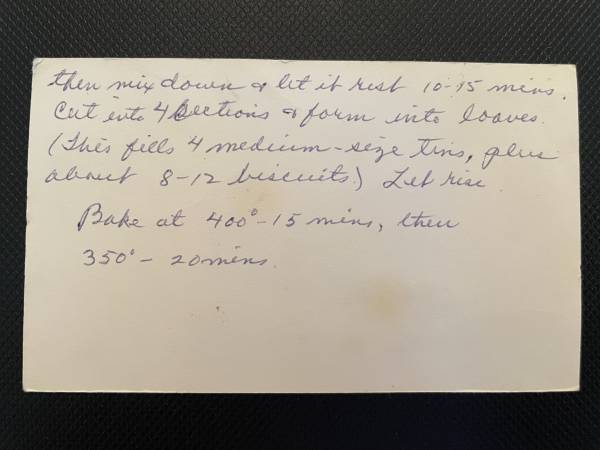 then mix down & let it rest 10-15 mins.
Cut into 4 sections & form into loaves.
(This fills 4 medium-size tins, plus
about 8-12 biscuits.) Let rise.
Bake at 400° - 15 mins, then
350° - 20 mins.